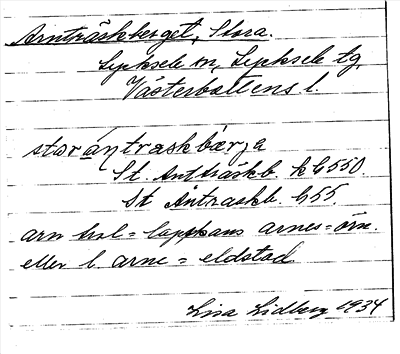 Arnträskberget, Stora.
Lycksele sn, Lycksele tg,
Västerbottens l.
storaṇtraskbærja
St. Antträskb. k G550.
St Åntraskb. G55.
arn trol = lappkans arnes = örn.
eller l. arne = eldstad
Lisa Lidberg 1934